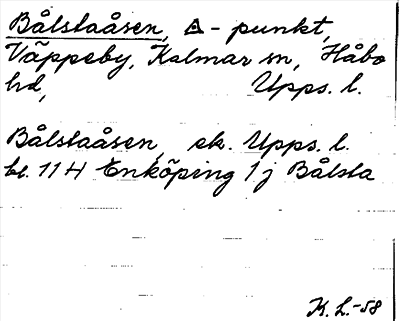 Bålstaåsen, △-punkt,
Väppeby, Kalmar sn, Håbo
hd, Upps. l.
Bålstaåsen, ek. Upps. l.
bl. 11 H Enköping 1 j Bålsta
K. L.-58